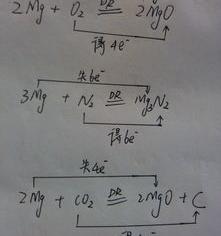 2Mg + O₂ 点燃 2MgO
得4e⁻
失6e⁻
3Mg + N₂ 点燃 Mg₃N₂
得6e⁻
失4e⁻
2Mg + CO₂ 点燃 2MgO + C